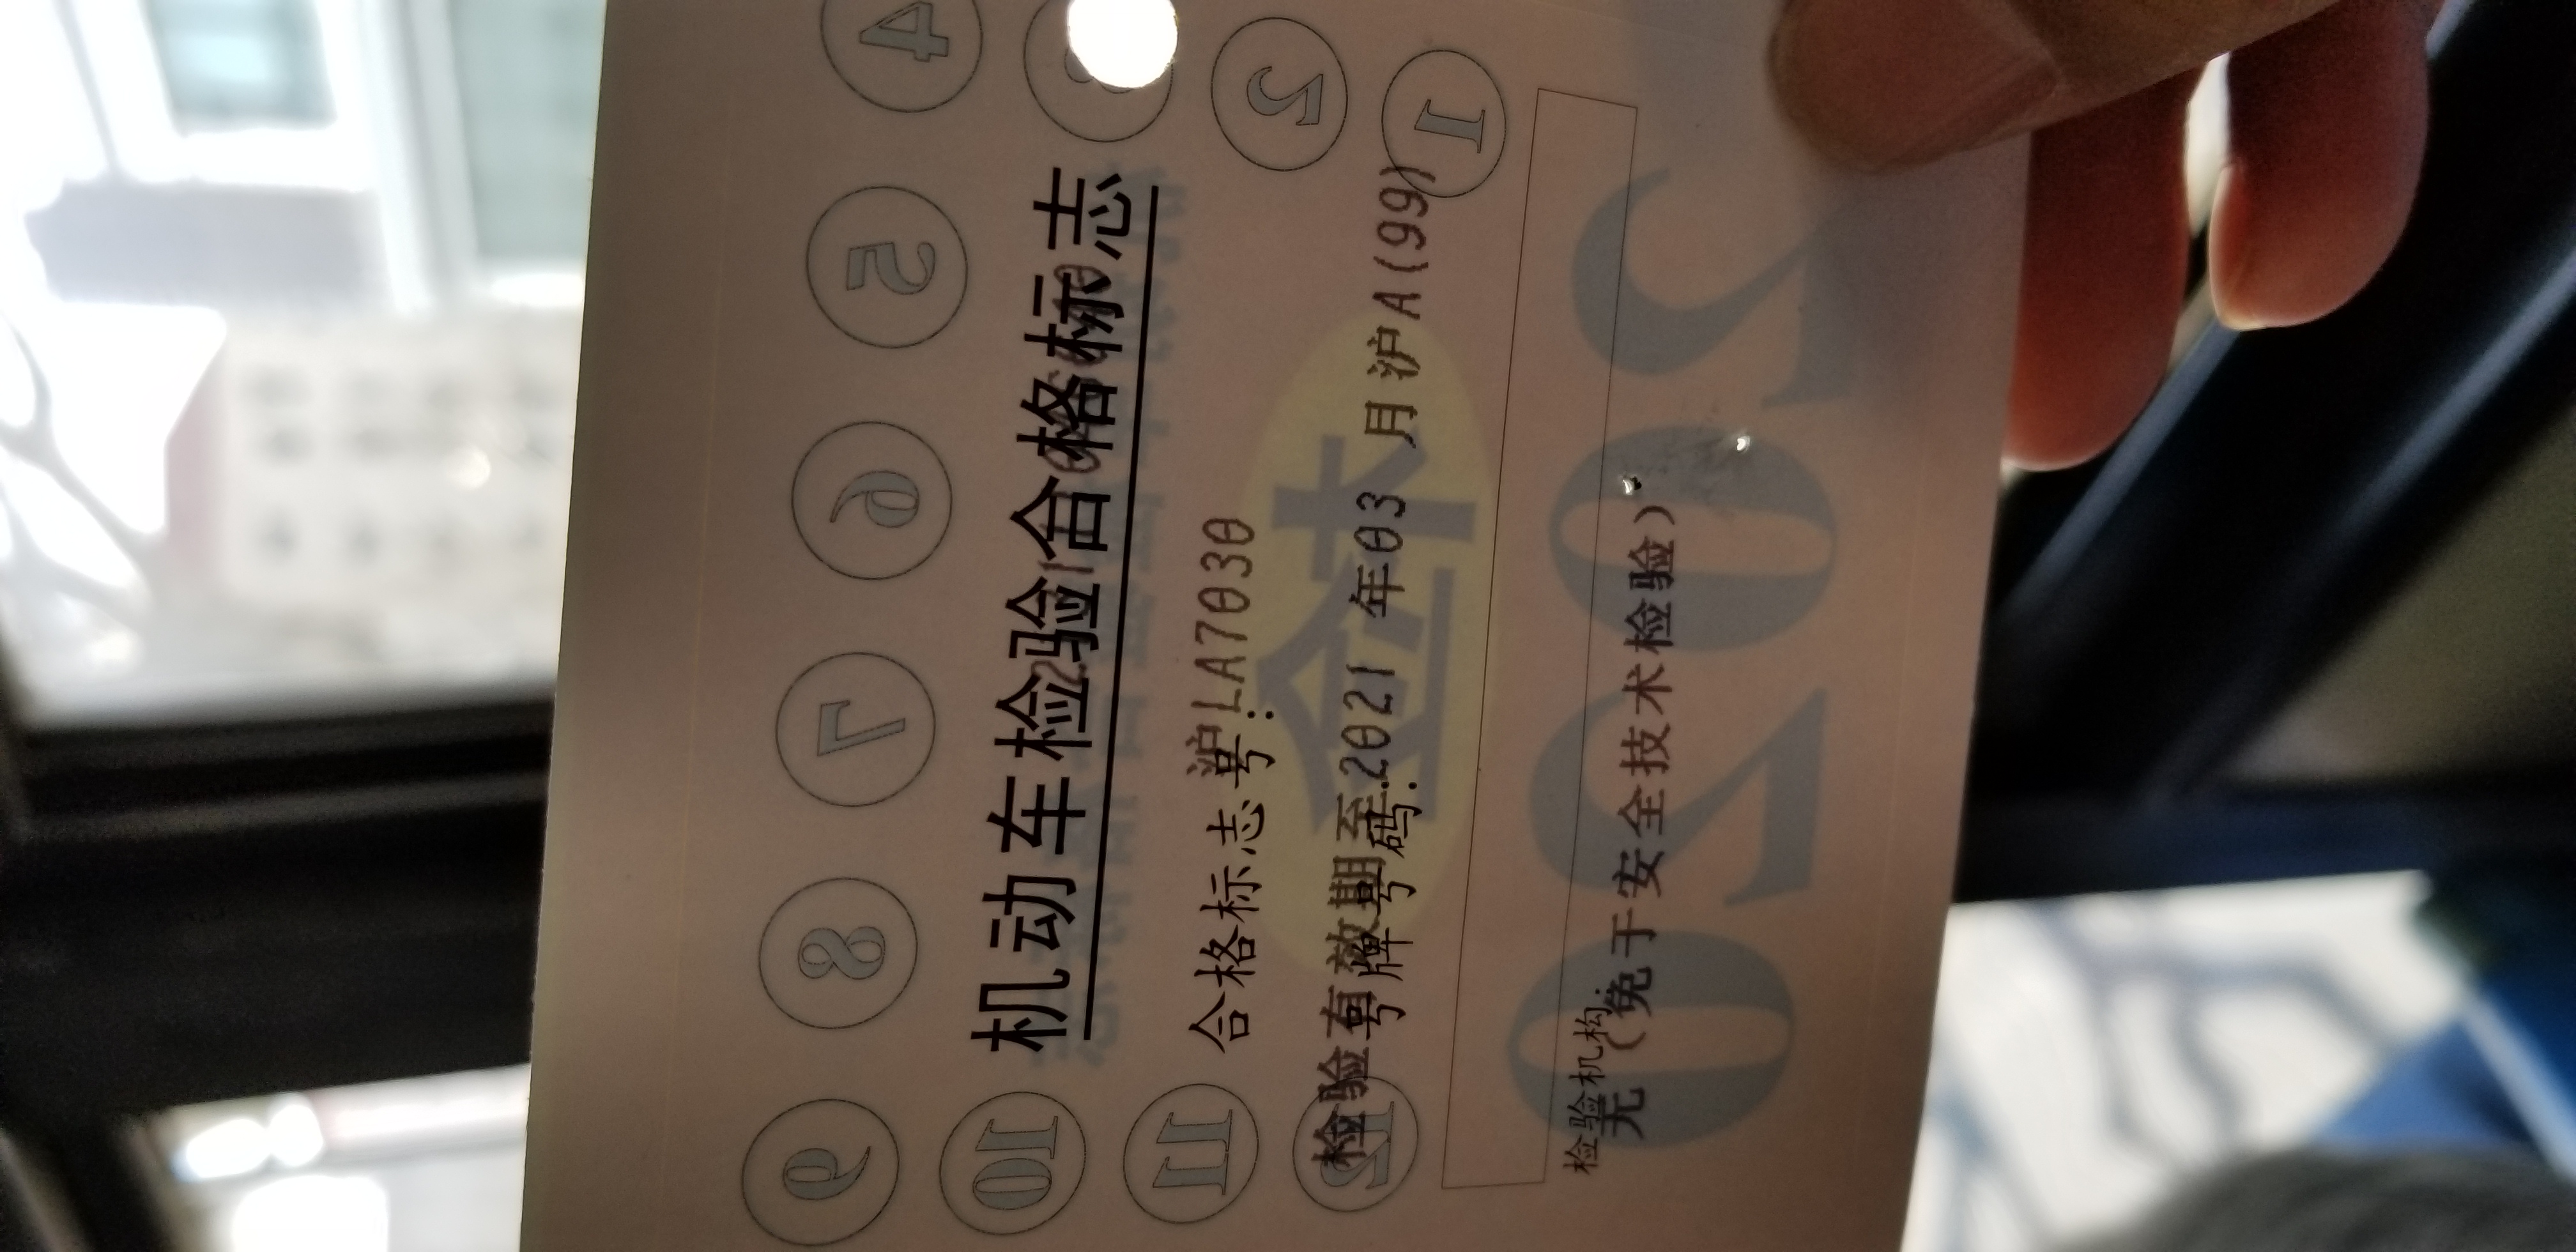 9 8 7 6 5 4
10
机动车检验合格标志
11
合格标志号:
沪LA7030
2
12
检验有效期至2021 年03 月沪A(99)
号牌号码:
1
检验机构:
无（免于安全技术检验）
检
2020